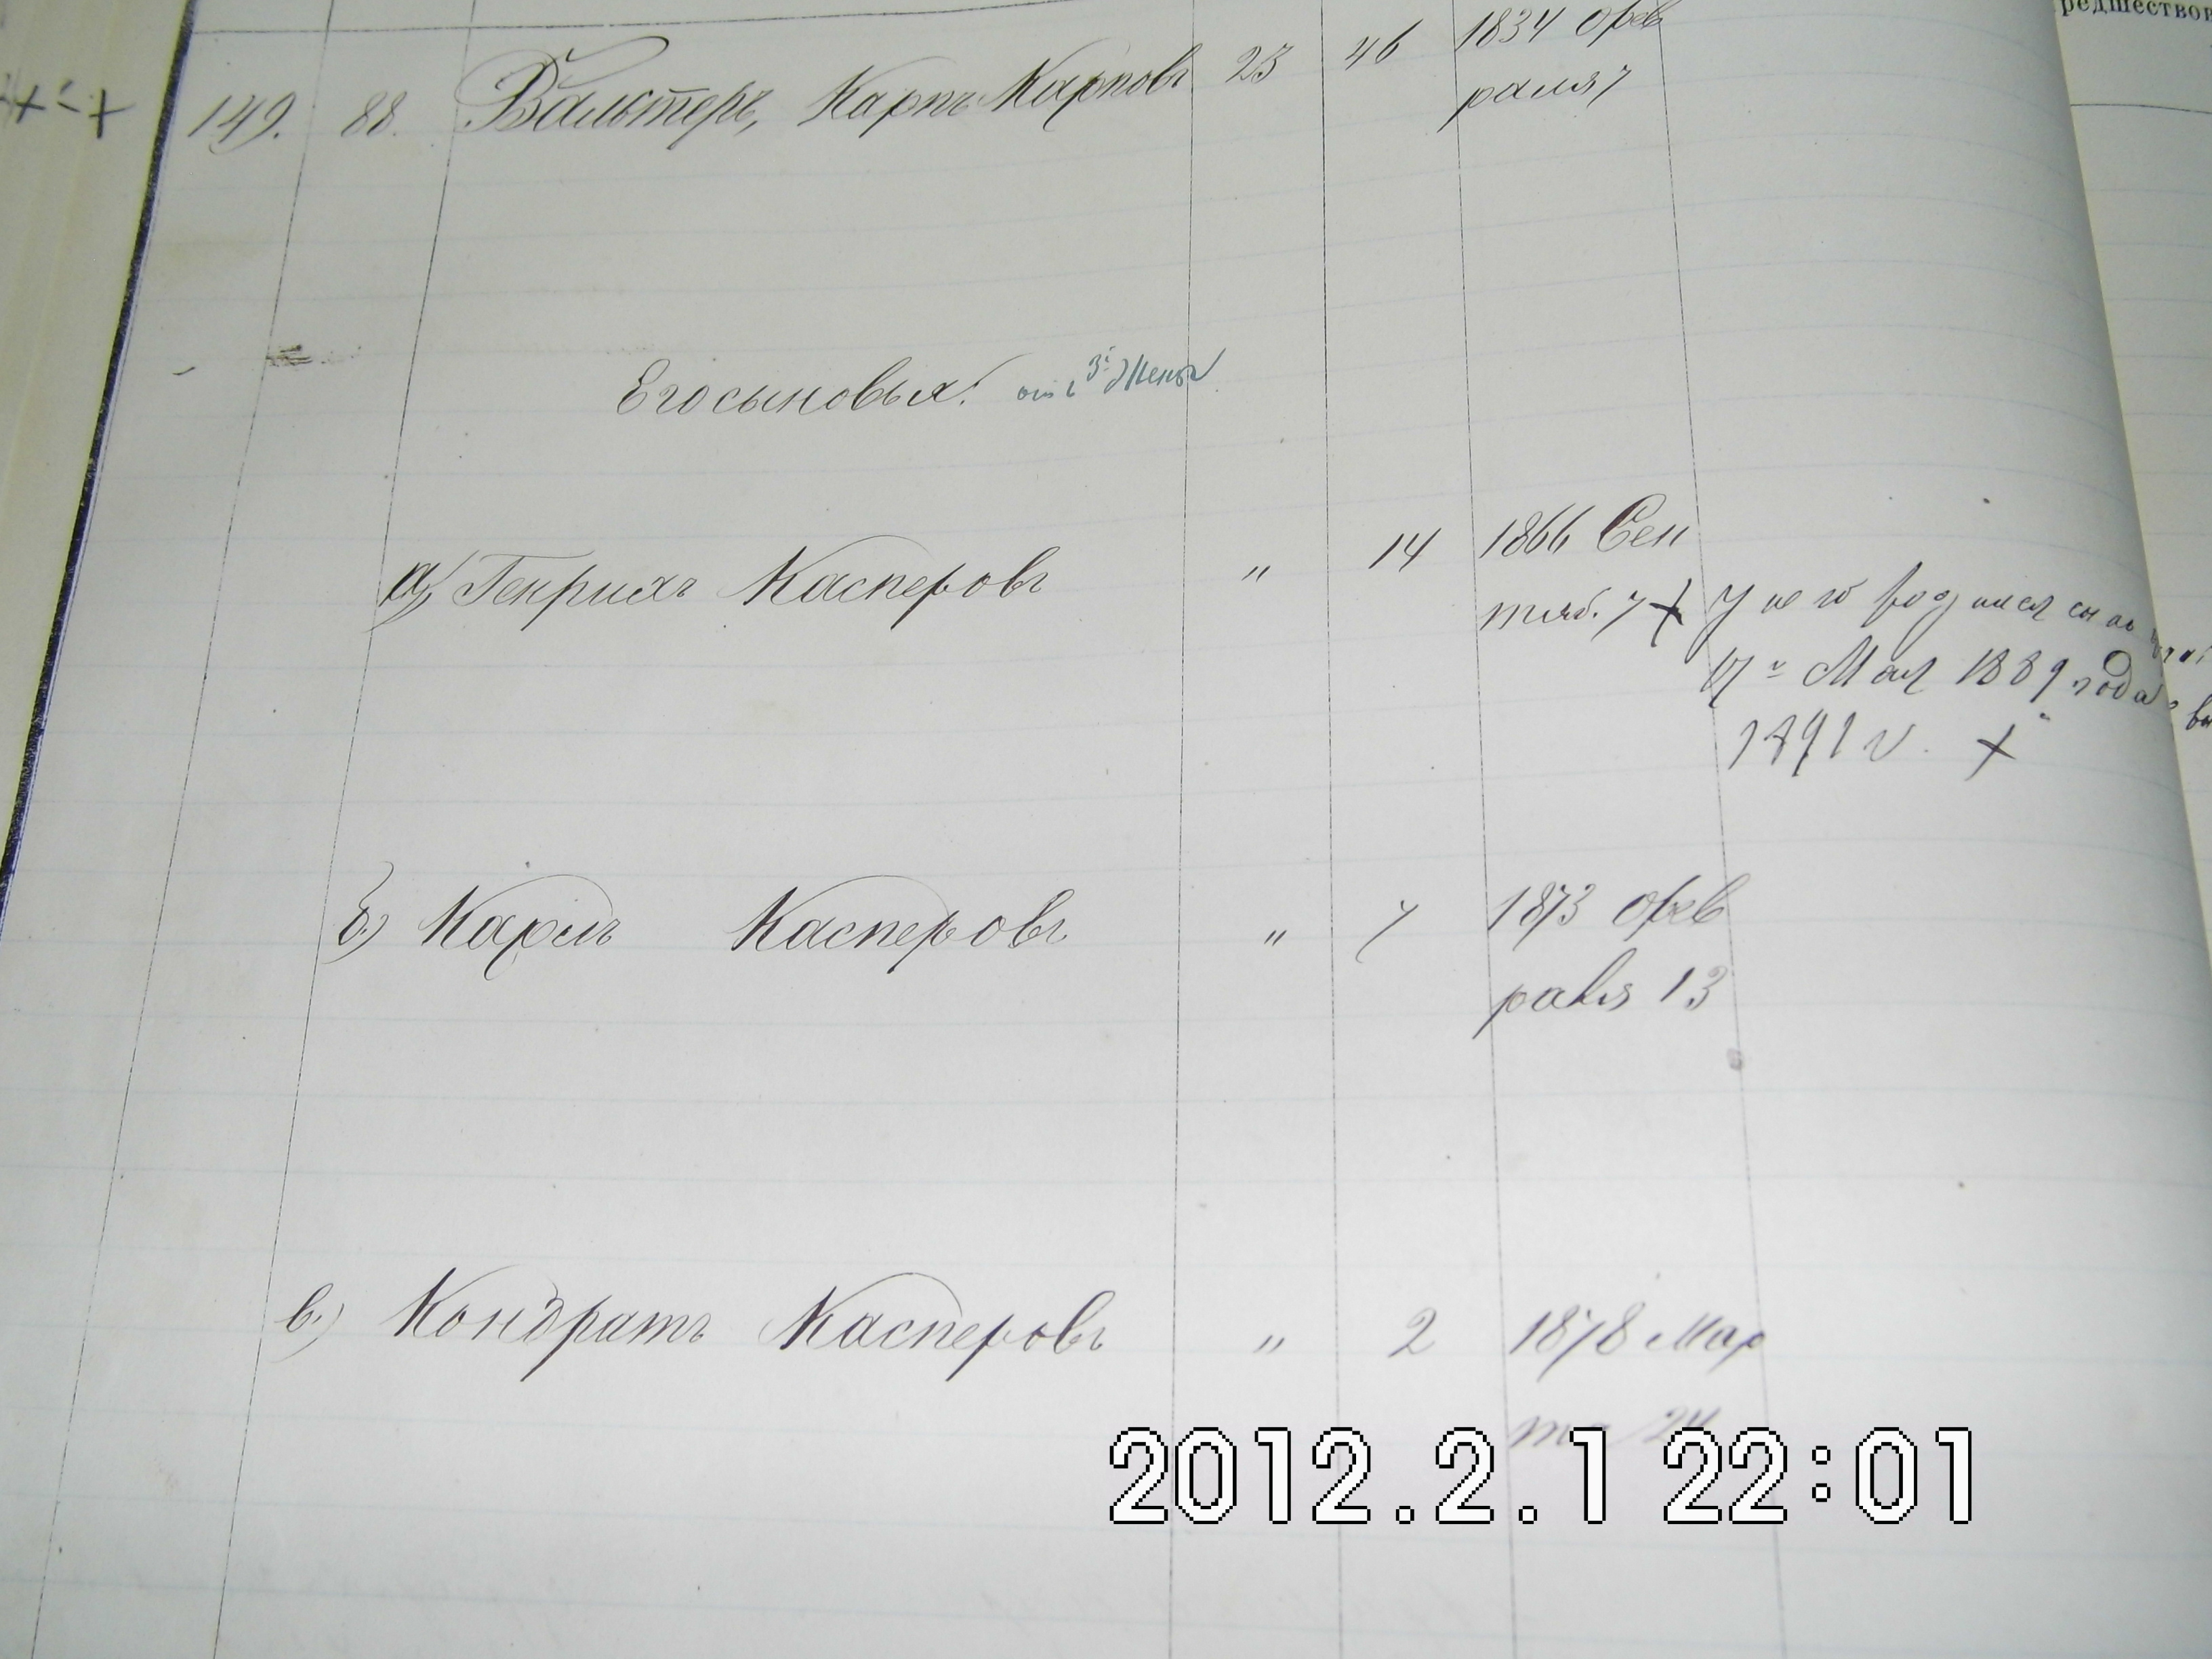 редшествов
149. 88. Вальтеръ, Карпъ Карповъ 23 46 1834 Фев
раля 7
Его сыновья: отъ 3й Жены
а) Генрихъ Касперовъ " 14 1866 Сен
тяб. 7 + У него родился сынъ
17го Мая 1889 года
1891 г. +
б) Карлъ Касперовъ " 7 1873 Фев
раля 13
в) Кондратъ Касперовъ " 2 1878 Мар
та 24
2012.2.1 22:01